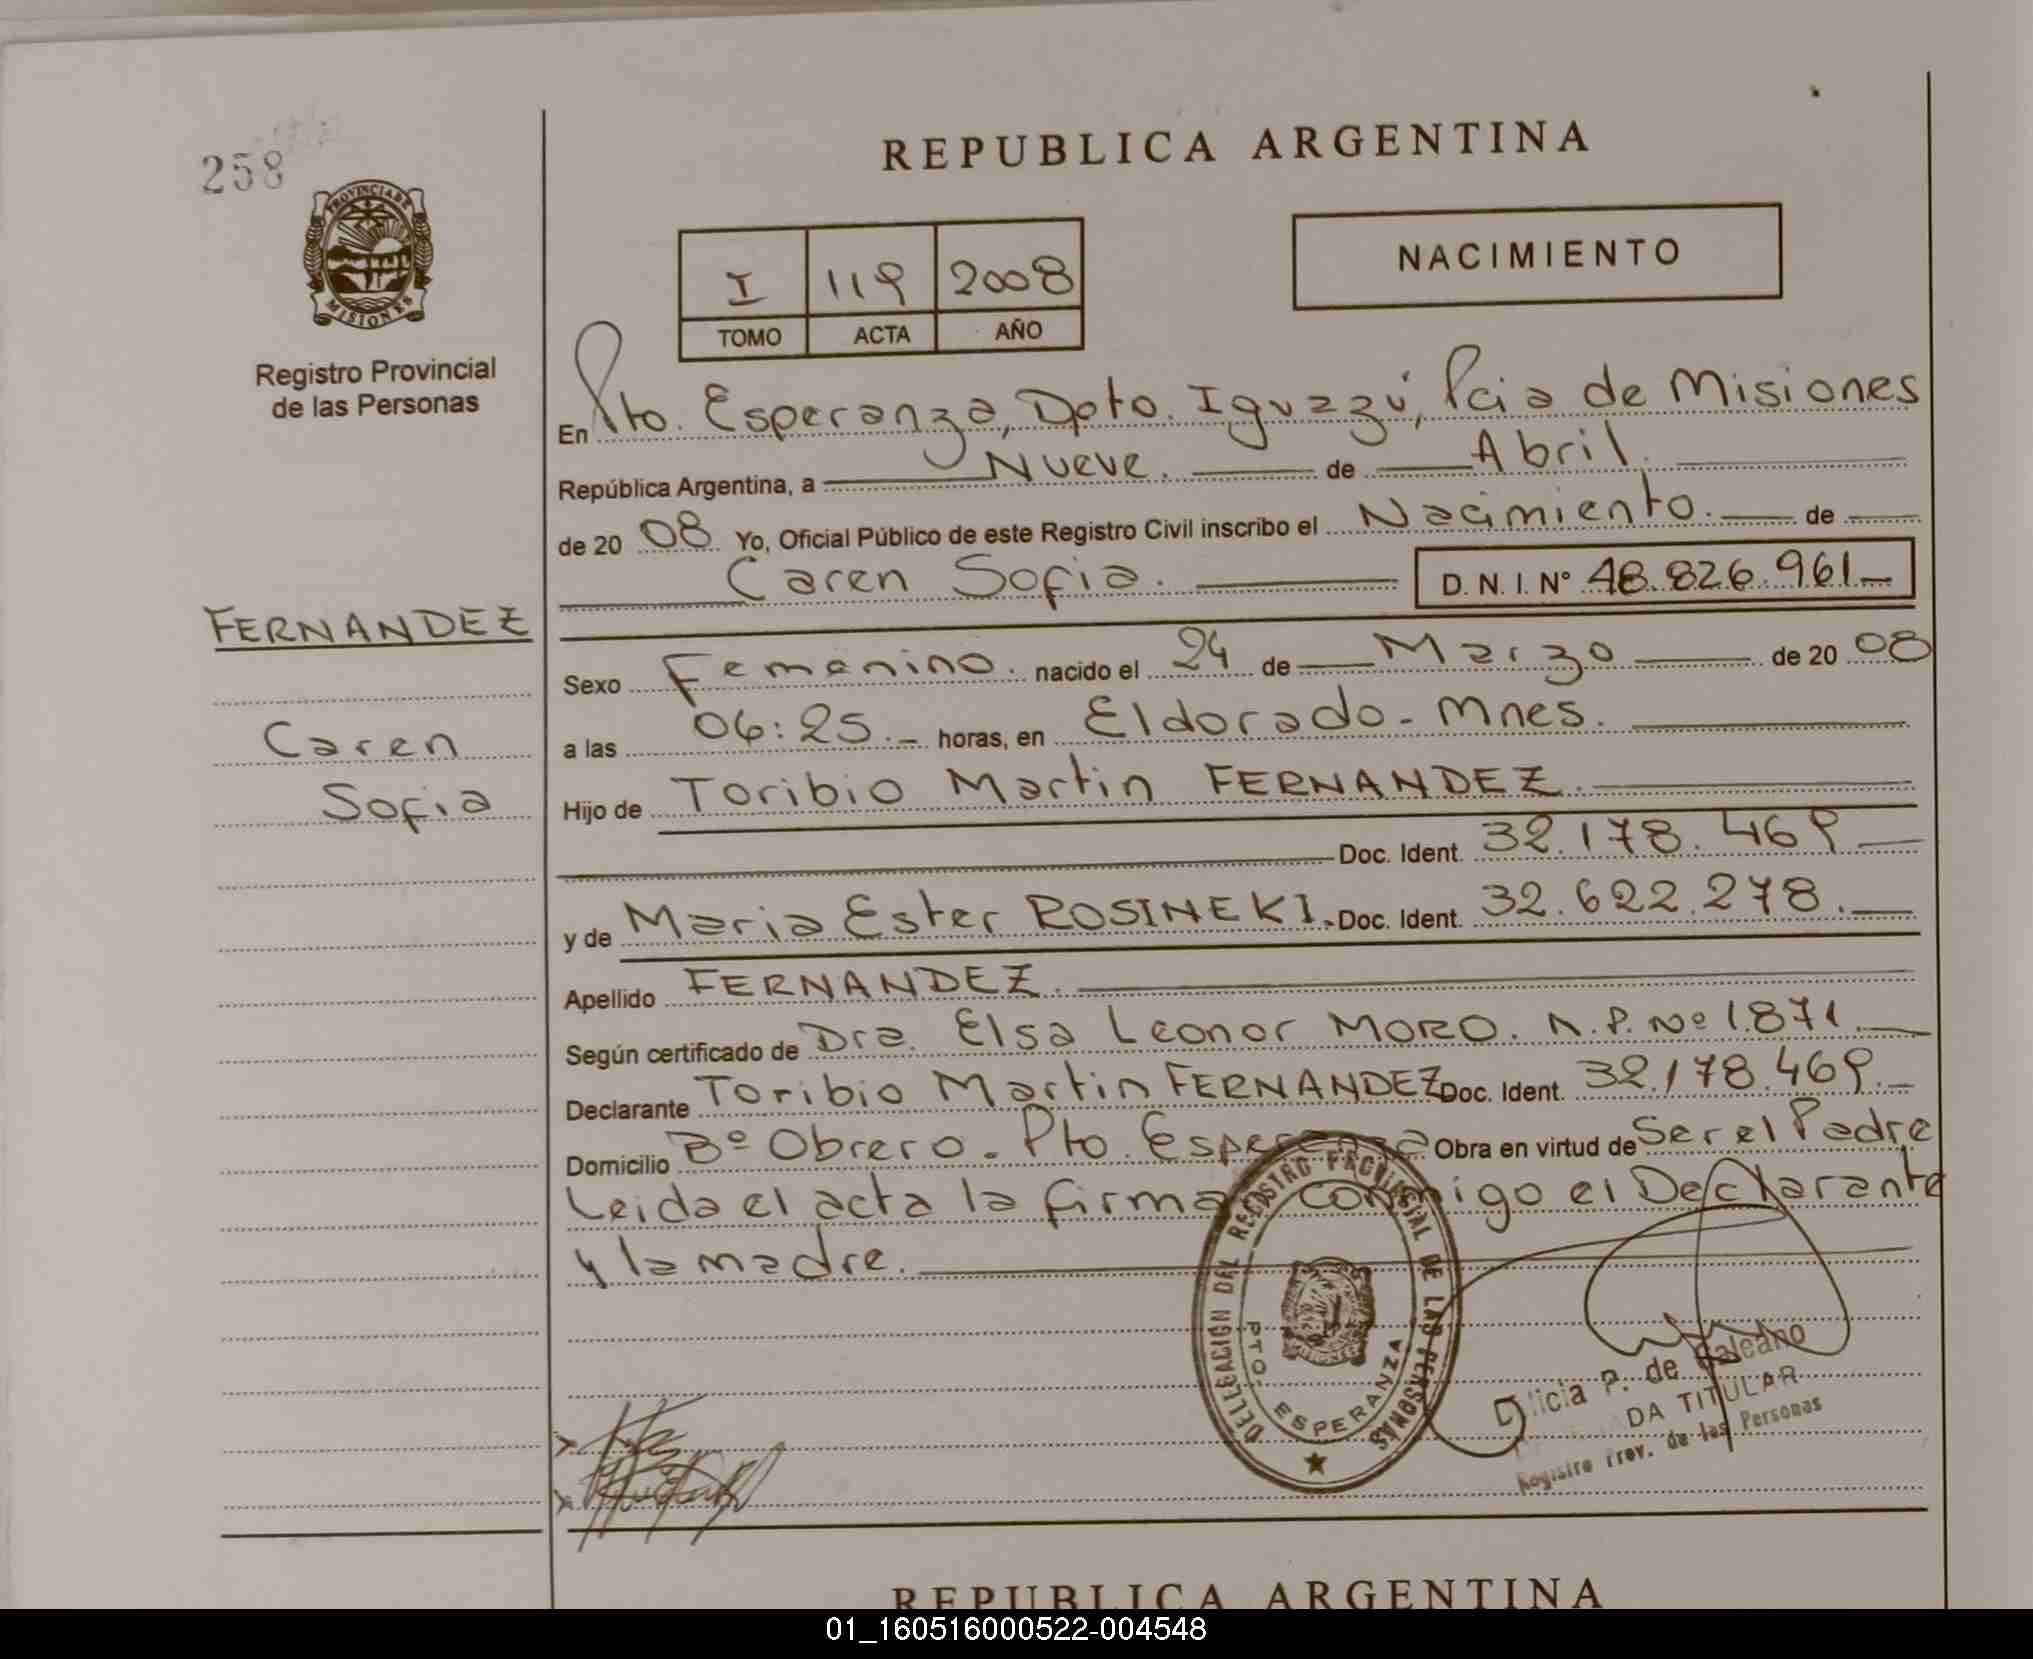 258
PROVINCIA DE
MISIONES
Registro Provincial
de las Personas
FERNANDEZ
Caren
Sofia
REPUBLICA ARGENTINA
I 119 2008
TOMO ACTA AÑO
NACIMIENTO
En Pto. Esperanza, Dpto. Iguazú, Pcia de Misiones
República Argentina, a Nueve. de Abril.
de 20 08 Yo, Oficial Público de este Registro Civil inscribo el Nacimiento. de
Caren Sofia. D. N. I. N° 48.826.961
Sexo Femenino. nacido el 24 de Marzo de 20 08
a las 06:25.- horas, en Eldorado - Mnes.
Hijo de Toribio Martin FERNANDEZ.
Doc. Ident. 32.178.469
y de Maria Ester ROSINEKI. Doc. Ident. 32.622.278.
Apellido FERNANDEZ.
Según certificado de Dra. Elsa Leonor MORO. P. Nº 1.871.
Declarante Toribio Martin FERNANDEZ Doc. Ident. 32.178.469.
Domicilio Bº Obrero - Pto. Esperanza Obra en virtud de Ser el Padre
Leida el acta la firma conmigo el Declarante
y la madre.
DELEGACION DEL REGISTRO PROVINCIAL DE LAS PERSONAS
PTO. ESPERANZA
Alicia P. de Galeano
TITULAR
Registro Prov. de las Personas
REPUBLICA ARGENTINA
01_160516000522-004548